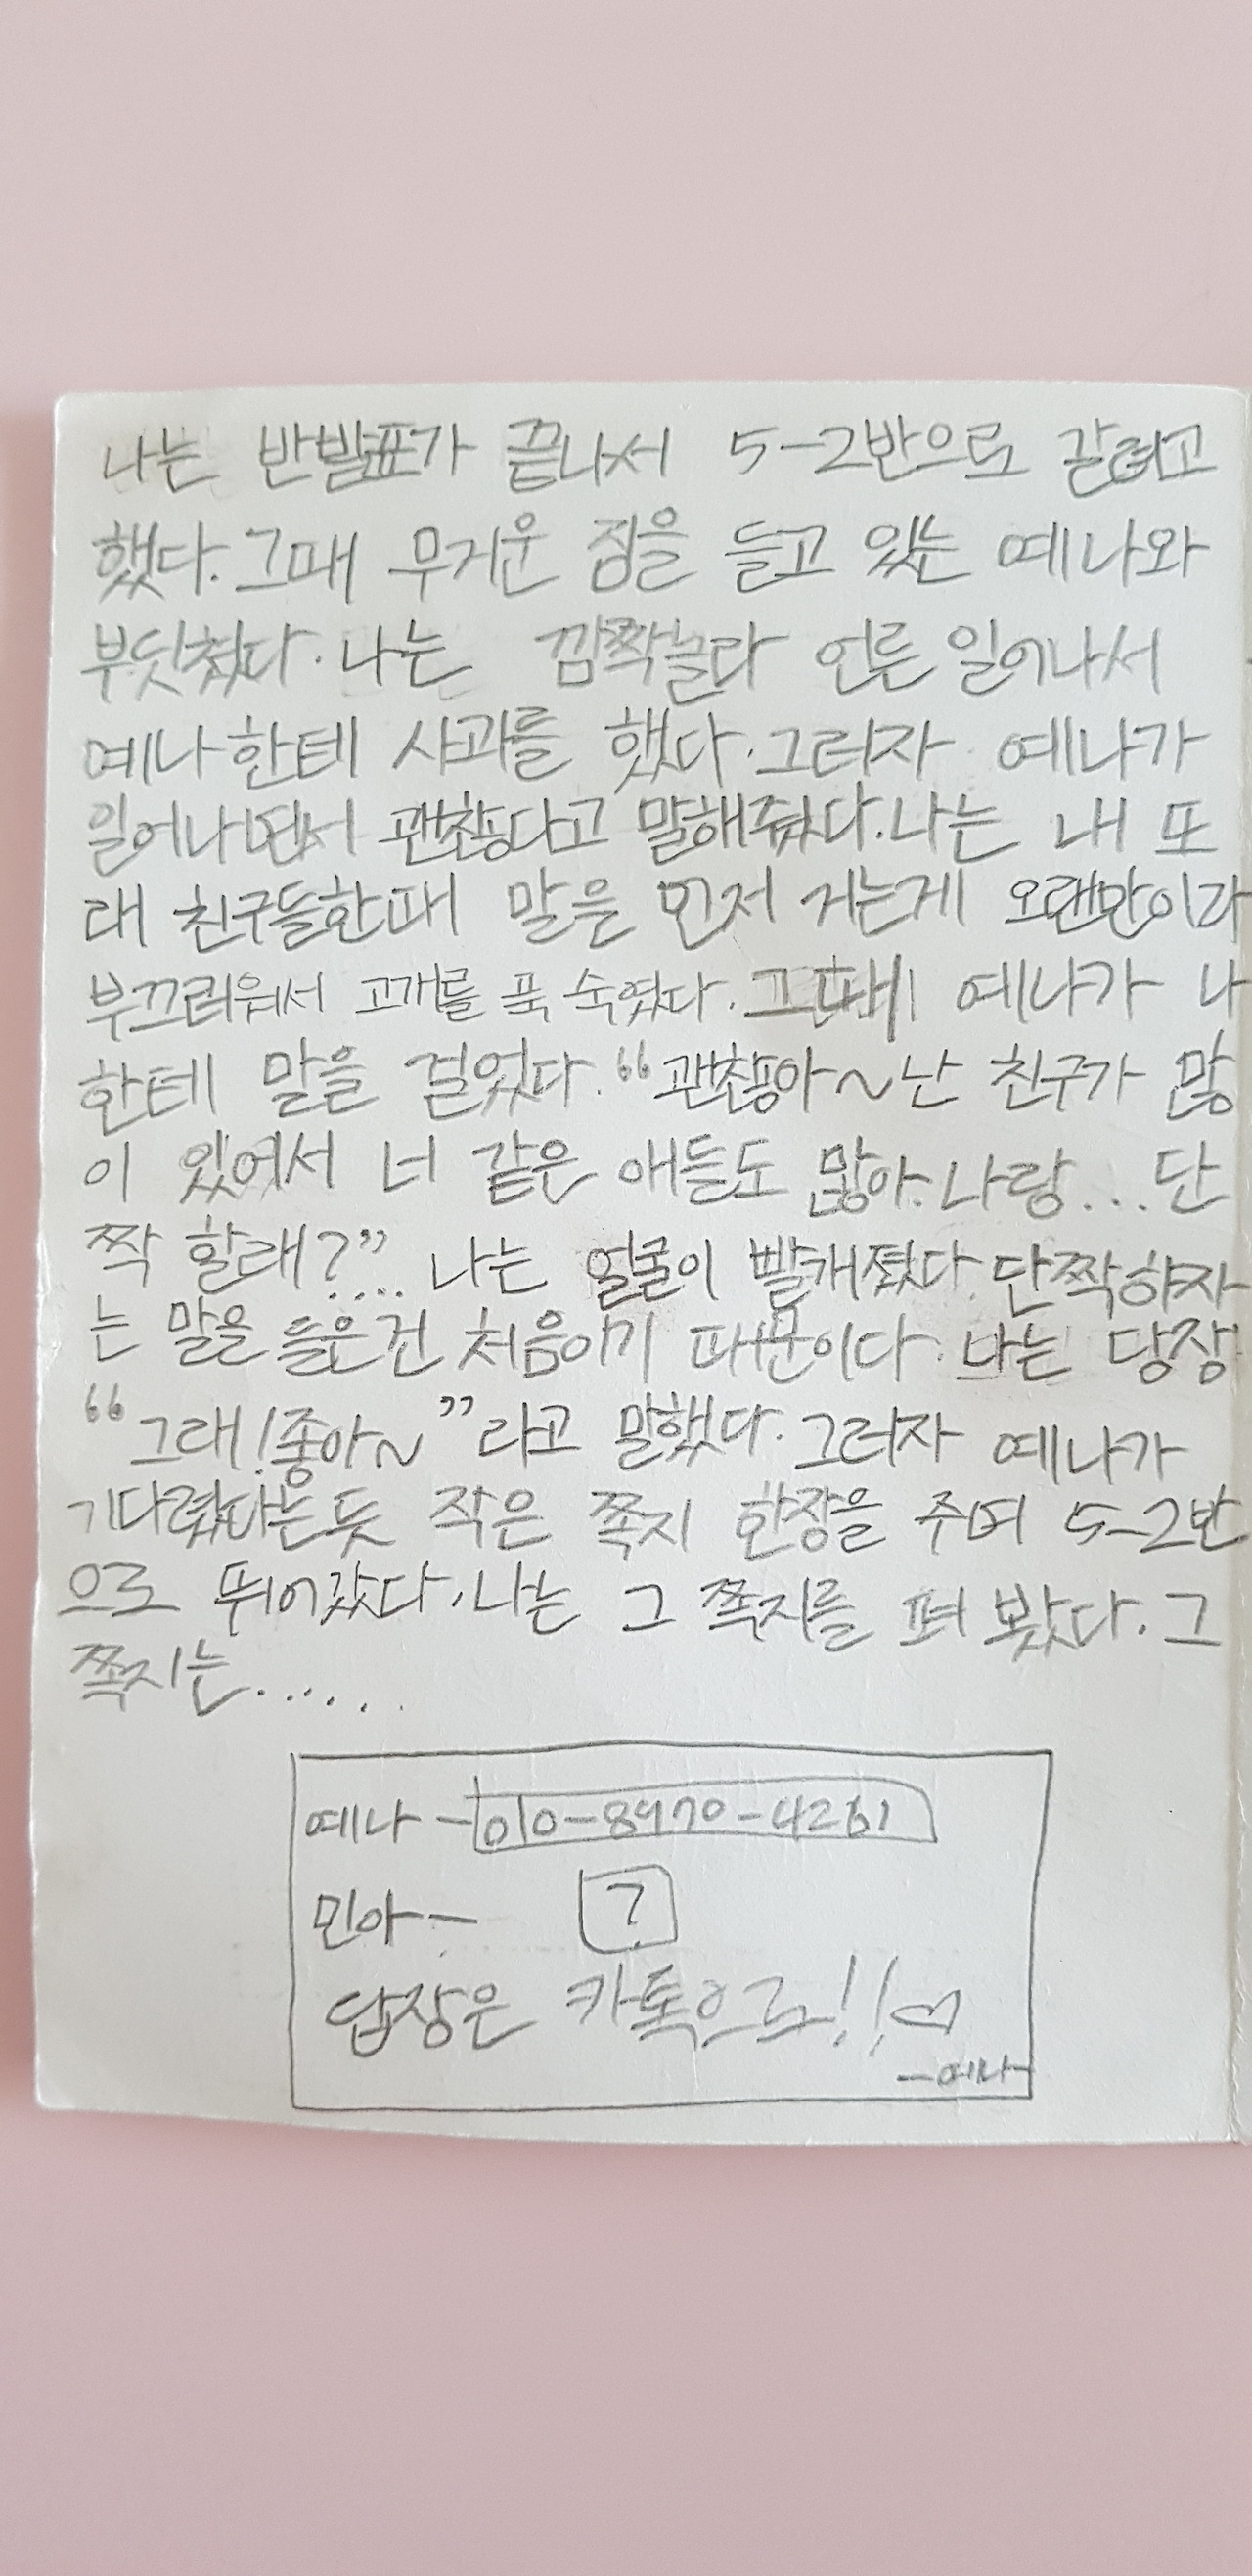 나는 반발표가 끝나서 5-2반으로 갈려고
했다. 그때 무거운 짐을 들고 있는 예나와
부딧쳤다. 나는 깜짝놀라 언른 일어나서
예나한테 사과를 했다. 그러자 예나가
일어나면서 괜찮다고 말해줬다. 나는 내 또
래 친구들한때 말을 먼저 거는게 오랜만이라
부끄러워서 고개를 푹 숙였다. 그때 예나가 나
한테 말을 걸었다. “괜찮아~ 난 친구가 많
이 있어서 너 같은 애들도 많아. 나랑... 단
짝 할래?”.... 나는 얼굴이 빨개졌다. 단짝하자
는 말을 들은건 처음이기 때문이다. 나는 당장
“그래! 좋아~”라고 말했다. 그러자 예나가
기다렸다는듯 작은 쪽지 한장을 주며 5-2반
으로 뛰어갔다. 나는 그 쪽지를 펴 봤다. 그
쪽지는......
예나 - 010-8970-4261
민아 - ?
답장은 카톡으로!!♡
-예나-